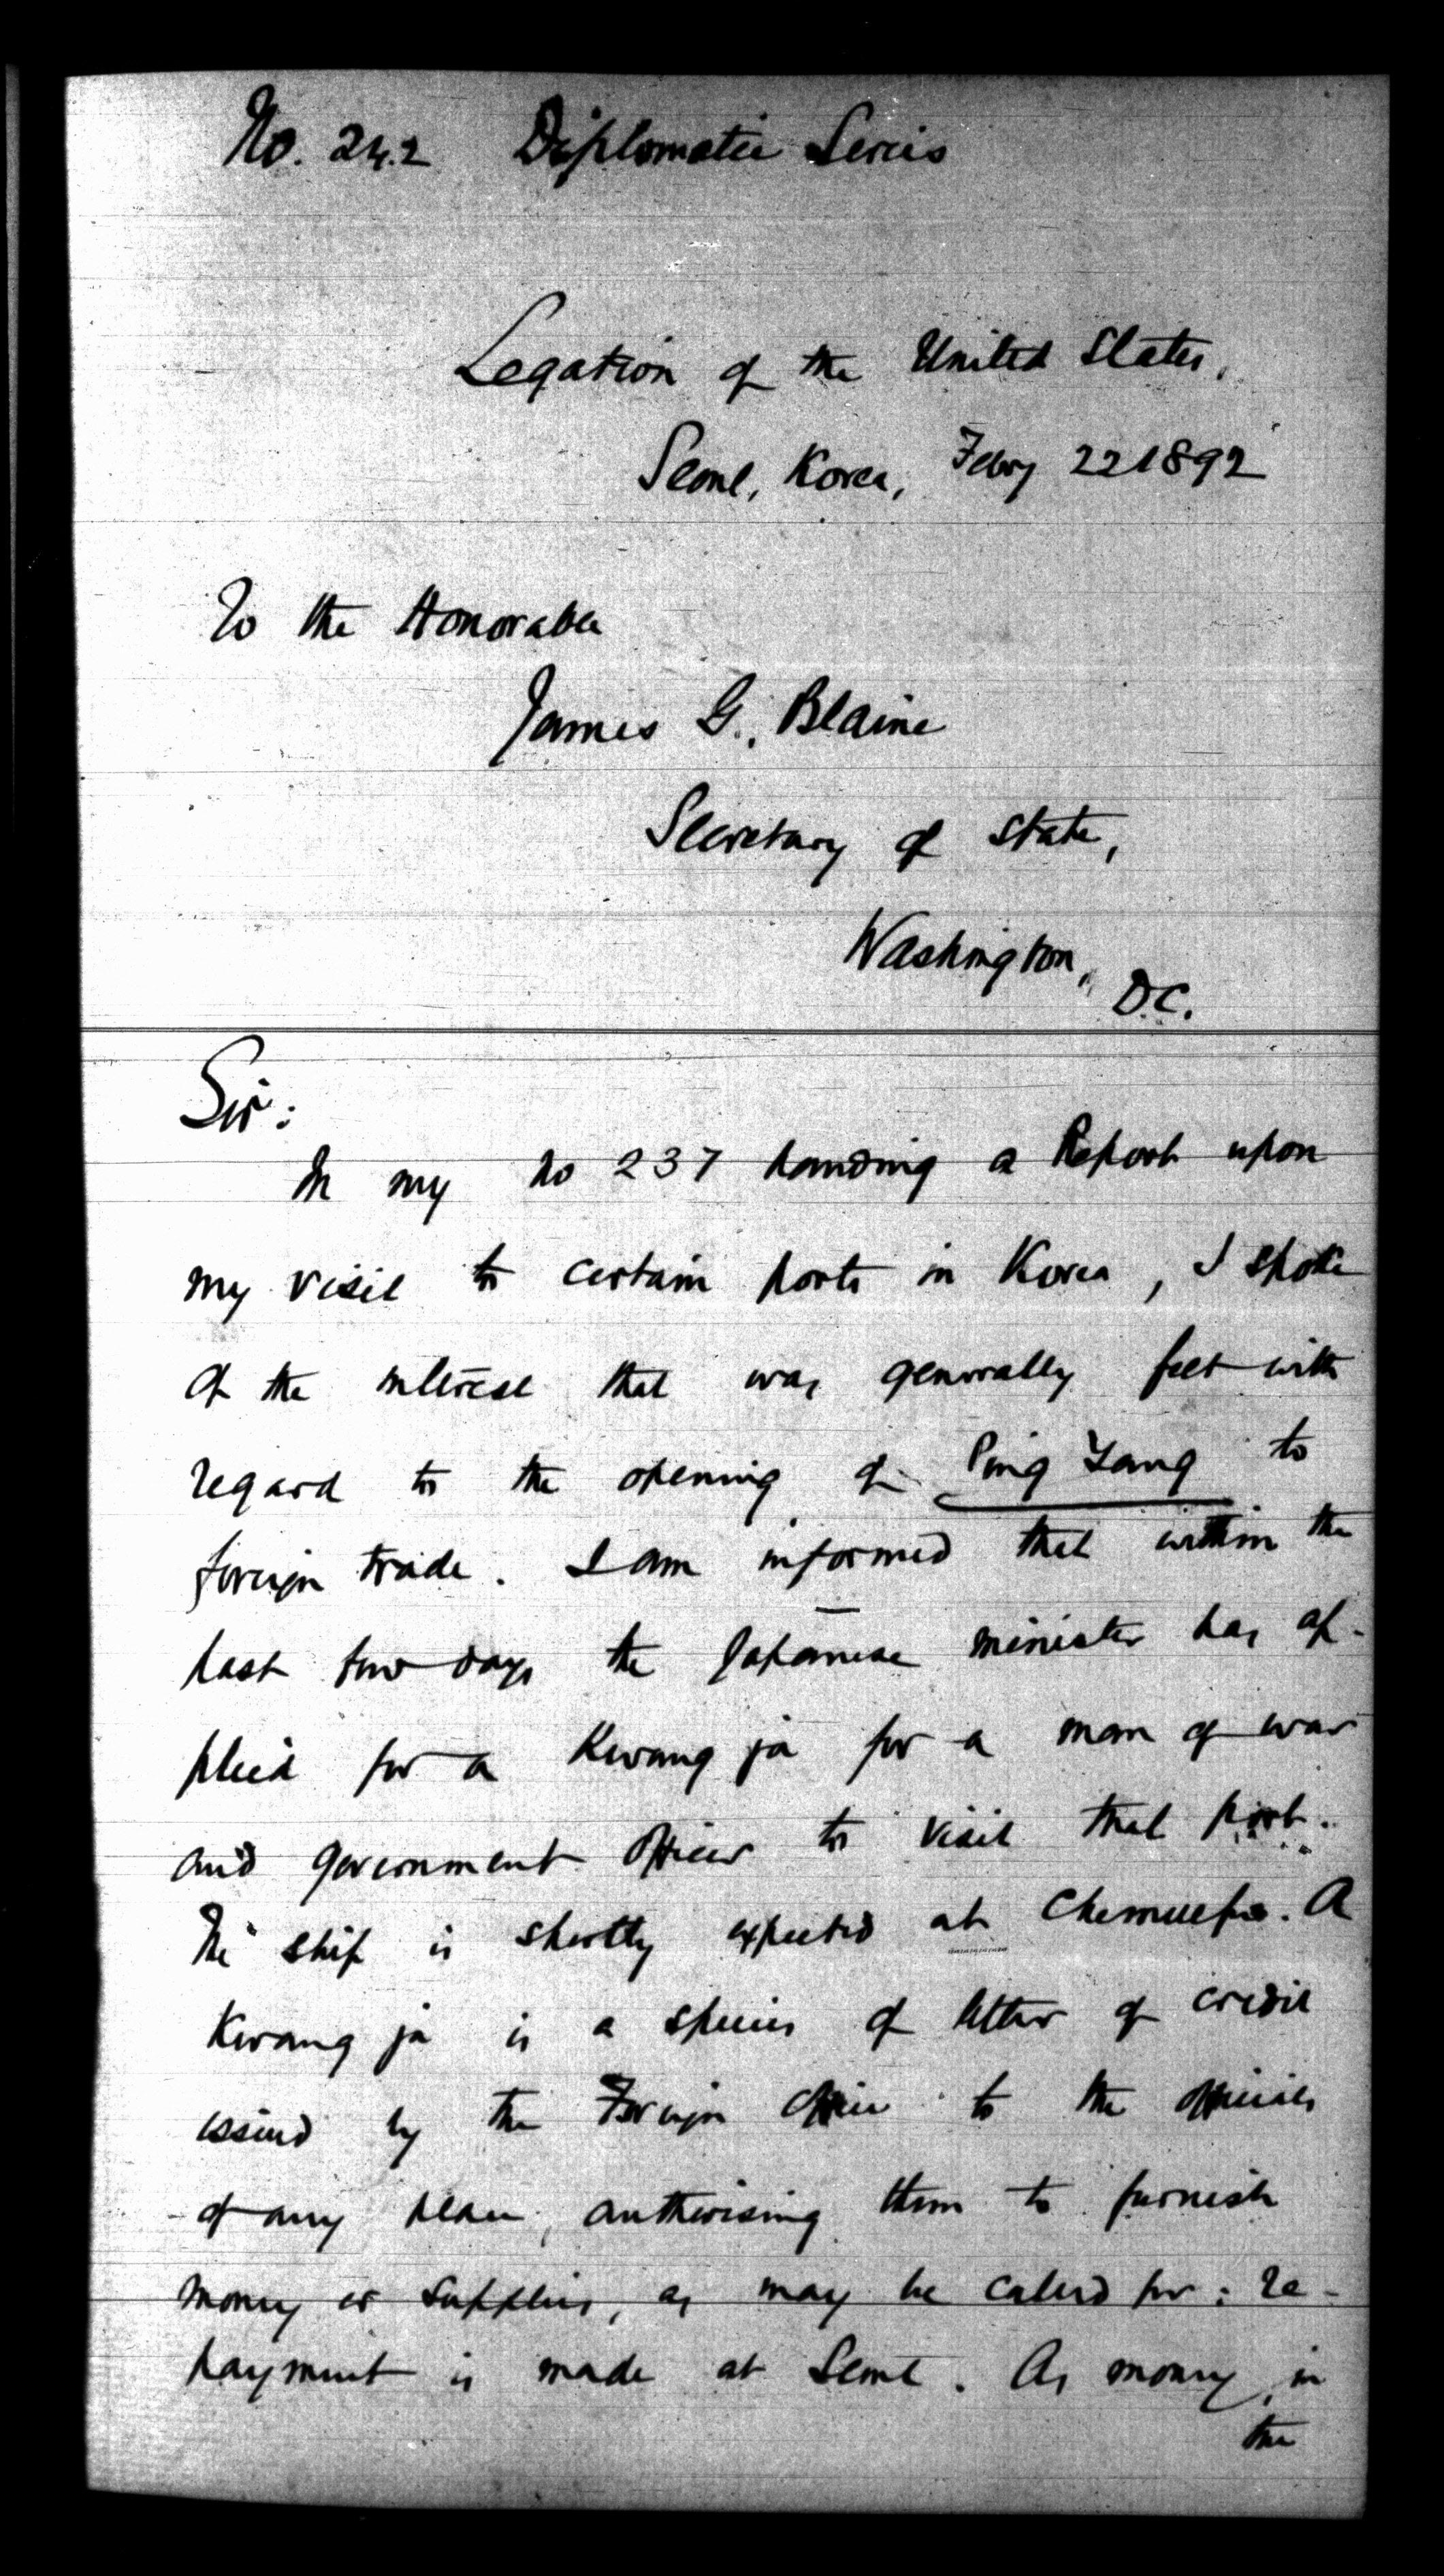 No. 242 Diplomatic Series
Legation of the United States,
Seoul, Korea, Febry 22 1892
To the Honorable
James G. Blaine
Secretary of State,
Washington,
D.C.
Sir:
In my No 237 handing a Report upon
my visit to certain ports in Korea, I spoke
of the interest that was generally felt with
regard to the opening of Ping Yang to
foreign trade. I am informed that within the
past few days the Japanese minister has ap-
plied for a Kwang ja for a man of war
and government officer to visit that port.
The ship is shortly expected at Chemulpo. A
Kwang ja is a species of letter of credit
issued by the Foreign Office to the officials
of any place, authorising them to furnish
money or supplies, as may be called for: re-
payment is made at Seoul. As money, in
the